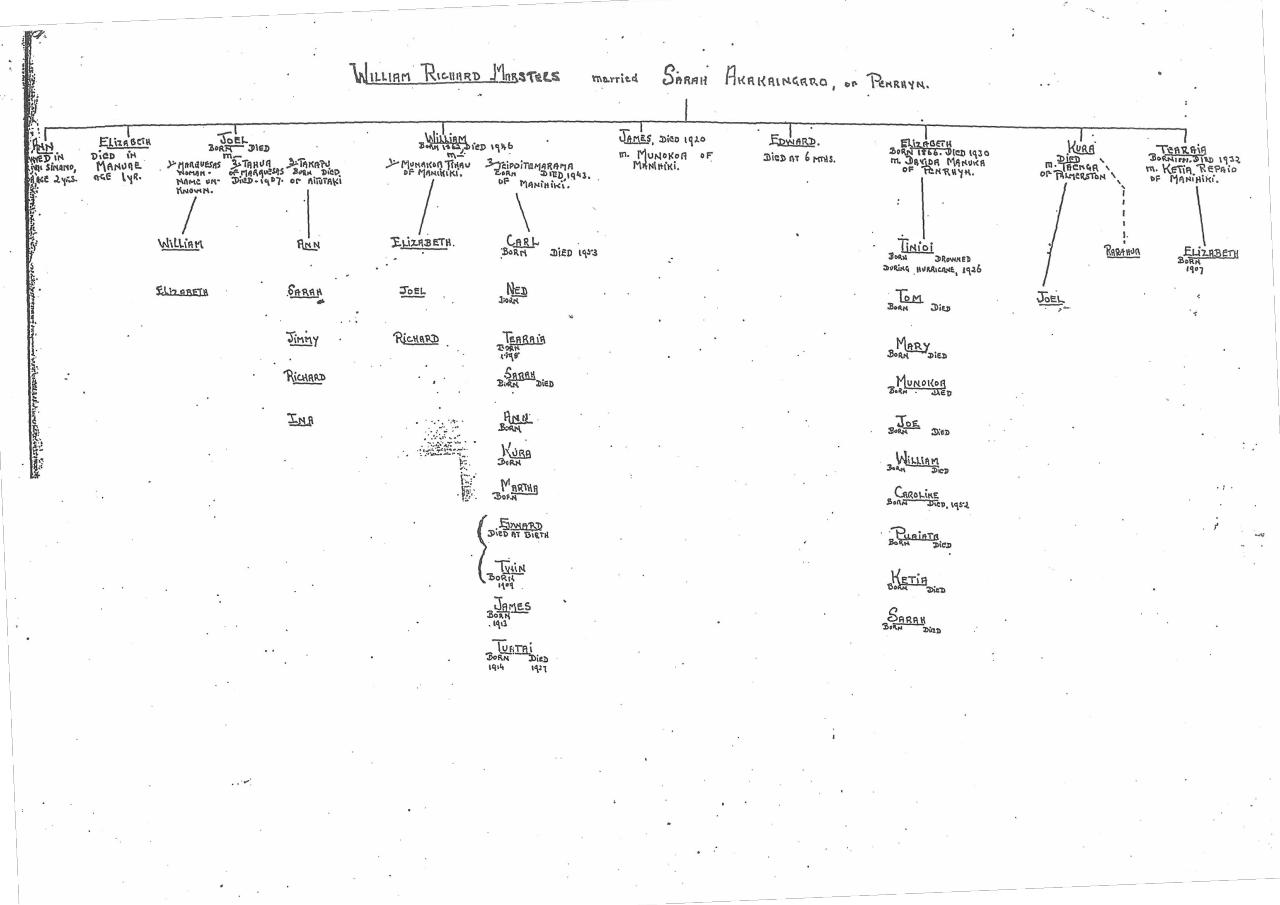 WILLIAM RICHARD MARSTERS married SARAH AKAKAINGARO, OF PENRHYN.
ANN
AGE 2 YRS.
ELIZABETH
DIED IN
MANUAE
AGE 1 YR.
JOEL
BORN DIED
m—
1/- MARQUESAS
WOMAN -
NAME UN-
KNOWN.
2/- TAHUA
OF MARQUESAS
DIED - 1907.
3/- TAKAPU
BORN DIED
OF AITUTAKI
WILLIAM
BORN 1862 DIED 1946
m—
1/- MUNAKOA TIHAU
OF MANIHIKI.
2/- TEIPOITEMARAMA
BORN DIED, 1943.
OF MANIHIKI.
JAMES, DIED 1920
m. MUNOKOA OF
MANIHIKI.
EDWARD.
DIED AT 6 MTHS.
ELIZABETH
BORN 1866. DIED 1930
m. DAVIDA MANUKA
OF PENRHYN.
KURA
DIED
m. TAENGA
OF PALMERSTON
TEARAIA
BORN DIED 1932
m. KETIA REPAIO
OF MANIHIKI.
WILLIAM
ELIZABETH
ANN
SARAH
JIMMY
RICHARD
INA
ELIZABETH.
JOEL
RICHARD
CARL
BORN DIED 1953
NED
BORN
TEARAIA
BORN
SARAH
BORN DIED
ANN
BORN
KURA
BORN
MARTHA
BORN
EDWARD
DIED AT BIRTH
TWIN
BORN
1909
JAMES
BORN
1913
TUATAI
BORN DIED
1914 1927
TINIOI
BORN DROWNED
DURING HURRICANE, 1926
TOM
BORN DIED
MARY
BORN DIED
MUNOKOA
BORN DIED
JOE
BORN DIED
WILLIAM
BORN DIED
CAROLINE
BORN DIED, 1952
PUAIATA
BORN DIED
KETIA
BORN DIED
SARAH
BORN DIED
JOEL
ELIZABETH
BORN
1907